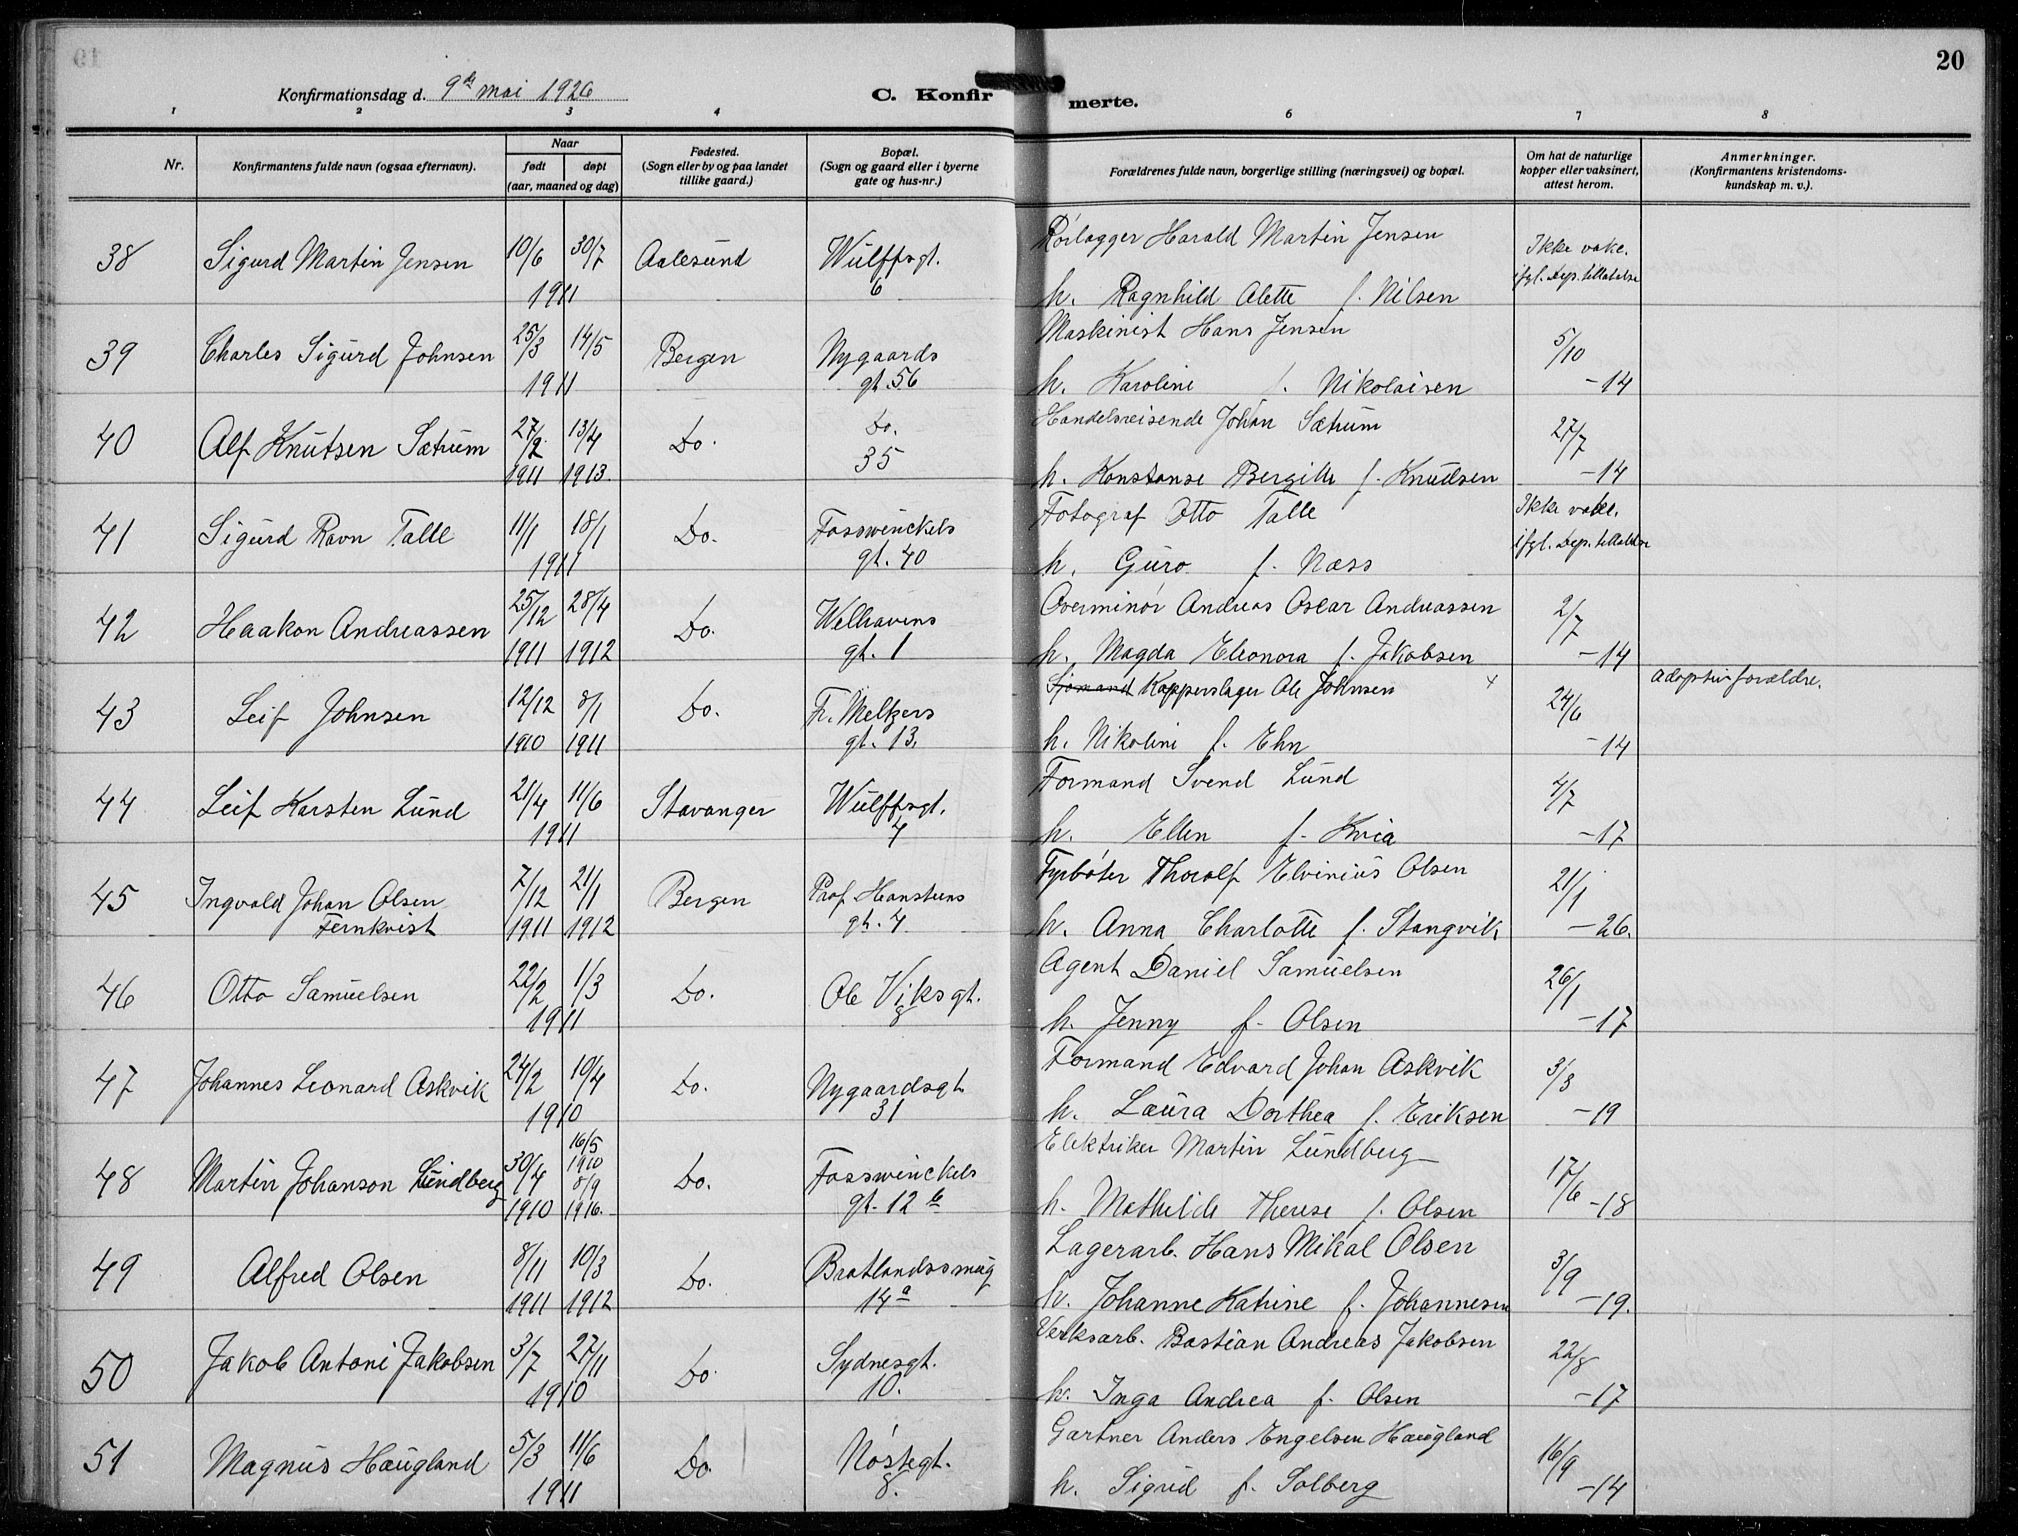 20
Konfirmationsdag d. 9de mai 1926
C. Konfirmerte.
1 2 3 4 5 6 7 8
Nr. Konfirmantens fulde navn (ogsaa efternavn). Naar født døpt (aar, maaned og dag) Fødested. (Sogn eller by og paa landet tillike gaard.) Bopæl. (Sogn og gaard eller i byerne gate og hus-nr.) Forældrenes fulde navn, borgerlige stilling (næringsvei) og bopæl. Om hat de naturlige kopper eller vaksinert, attest herom. Anmerkninger. (Konfirmantens kristendoms-kundskap m. v.).
38 Sigurd Martin Jensen 10/6 30/7 Aalesund Wulffsgt. Rørlægger Harald Martin Jensen Ikke vakc.
1911 6 h. Ragnhild Alette f. Nilsen ifgl. Dep. tillatelse
39 Charles Sigurd Johnsen 25/3 14/5 Bergen Nygaards Maskinist Hans Jensen 5/10
1911 gt. 56 h. Karoline f. Nikolaisen -14
40 Alf Knutsen Sætrum 27/2 13/4 Do. Do. Handelsreisende Johan Sætrum 27/7
1911 1913. 35 h. Konstanse Bergitte f. Knudsen -14
41 Sigurd Ravn Talle 11/1 18/1 Do. Fosswinckels Fotograf Otto Talle Ikke vakc.
1911 gt. 40 h. Guro f. Næss ifgl. Dep. tillatelse
42 Haakon Andreassen 25/12 28/4 Do. Welhavens Overminør Andreas Oscar Andreassen 2/7
1911 1912 gt. 1 h. Magda Eleonora f. Jakobsen -14
43 Leif Johnsen 12/12 8/1 Do. Fr. Meltzers Sjømand Kopperslager Ole Johnsen x 24/6 adoptivforældre.
1910 1911 gt. 13. h. Nikoline f. Ehn -14
44 Leif Karsten Lund 21/4 11/6 Stavanger Wulffsgt. Formand Svend Lund 4/7
1911 4 h. Ellen f. Kvia -17
45 Ingvald Johan Olsen 7/12 21/1 Bergen Prof. Hansteens Fyrbøter Thoralf Elvinius Olsen 21/1
Fernkvist 1911 1912 gt. 7 h. Anna Charlotte f. Stangvik -26.
46 Otto Samuelsen 22/2 1/3 Do. Ole Viksgt. Agent Daniel Samuelsen 26/1
1911 8 h. Jenny f. Olsen -17
47 Johannes Leonard Askvik 24/2 10/4 Do. Nygaardsgt Formand Edvard Johan Askvik 3/3
1910 31 h. Laura Dorthea f. Eriksen -19
48 Martin Johanson Lundberg 30/4 16/5 1910 8/9 Do. Fosswinckels Elektriker Martin Lundberg 17/6
1910 1916. gt. 12 b h. Mathilde Therese f. Olsen -18
49 Alfred Olsen 8/11 10/3 Do. Bratlandssmug Lagerarb. Hans Mikal Olsen 3/9
1911 1912 14 a h. Johanne Katrine f. Johannesen -19.
50 Jakob Antoni Jakobsen 3/7 27/11 Do. Sydnesgt. Verksarb. Bastian Andreas Jakobsen 22/8
1910 10. h. Inga Andrea f. Olsen -17
51 Magnus Haugland 5/3 11/6 Do. Nøstegt. Gartner Anders Engelsen Haugland 16/9
1911 8. h. Sigrid f. Solberg -14